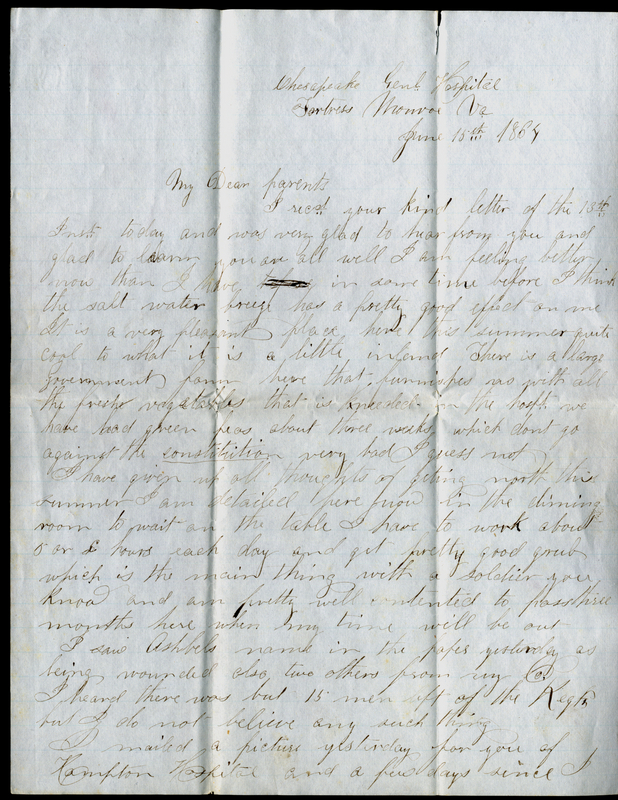 Chesapeake Genl Hospital
Fortress Monroe Va
June 15th 1864
My Dear parents
I recd your kind letter of the 13th
Inst today and was very glad to hear from you and
glad to learn you are all well I am feeling better
now than I have in some time before I think
the salt water breeze has a pretty good effect on me
It is a very pleasant place here this summer quite
cool to what it is a little inland There is a large
Government farm here that furnishes us with all
the fresh vegatables that is kneeded in the hospt we
have had green peas about three weeks which dont go
against the constitution very bad I guess not
I have given up all thoughts of giting north this
summer I am detailed here now in the dinning
room to wait on the table I have to work about
or hours each day and git pretty good grub
which is the main thing with a soldier you
know and am pretty well contented to pass three
months here when my time will be out
I saw Ashbels name in the paper yesterday as
being wounded also two others from my Co
I heard there was but 15 men left of the Regt
but I do not believe any such thing
I mailed a picture yesterday for you of
Hampton Hospital and a few days since I